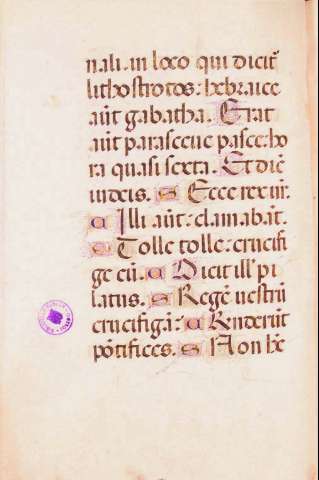 nali. in loco qui dicit᷑
lithostrotos: hebraice
aūt gabatha. Erat
aūt parasceue pasce: ho
ra quasi sexta. Et diē
iudeis. S Ecce rex ur̄.
C Illi aūt: clamabāt.
S Tolle tolle: crucifi
ge eū. C Dicit ill' pi
latus. S Regē uestrū
crucifigā: C Rn̄derūt
pōtifices. S Non hē